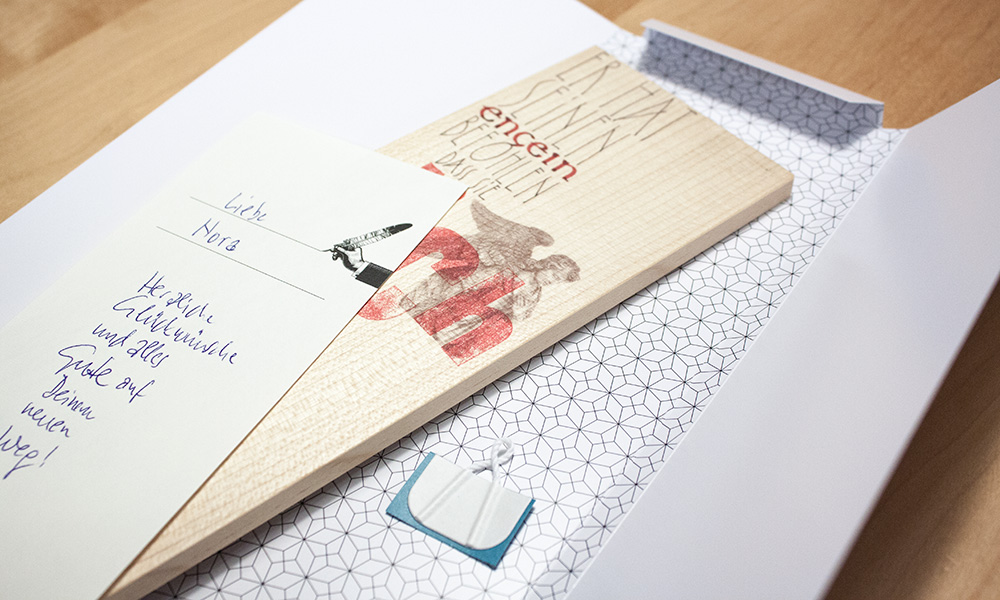 Liebe
Nora
Herzliche
Glückwünsche
und alles
Gute auf
Deinem
neuen
Weg!
ER HAT
SEINEN
engeln
BEFOHLEN
DASS SIE
ch